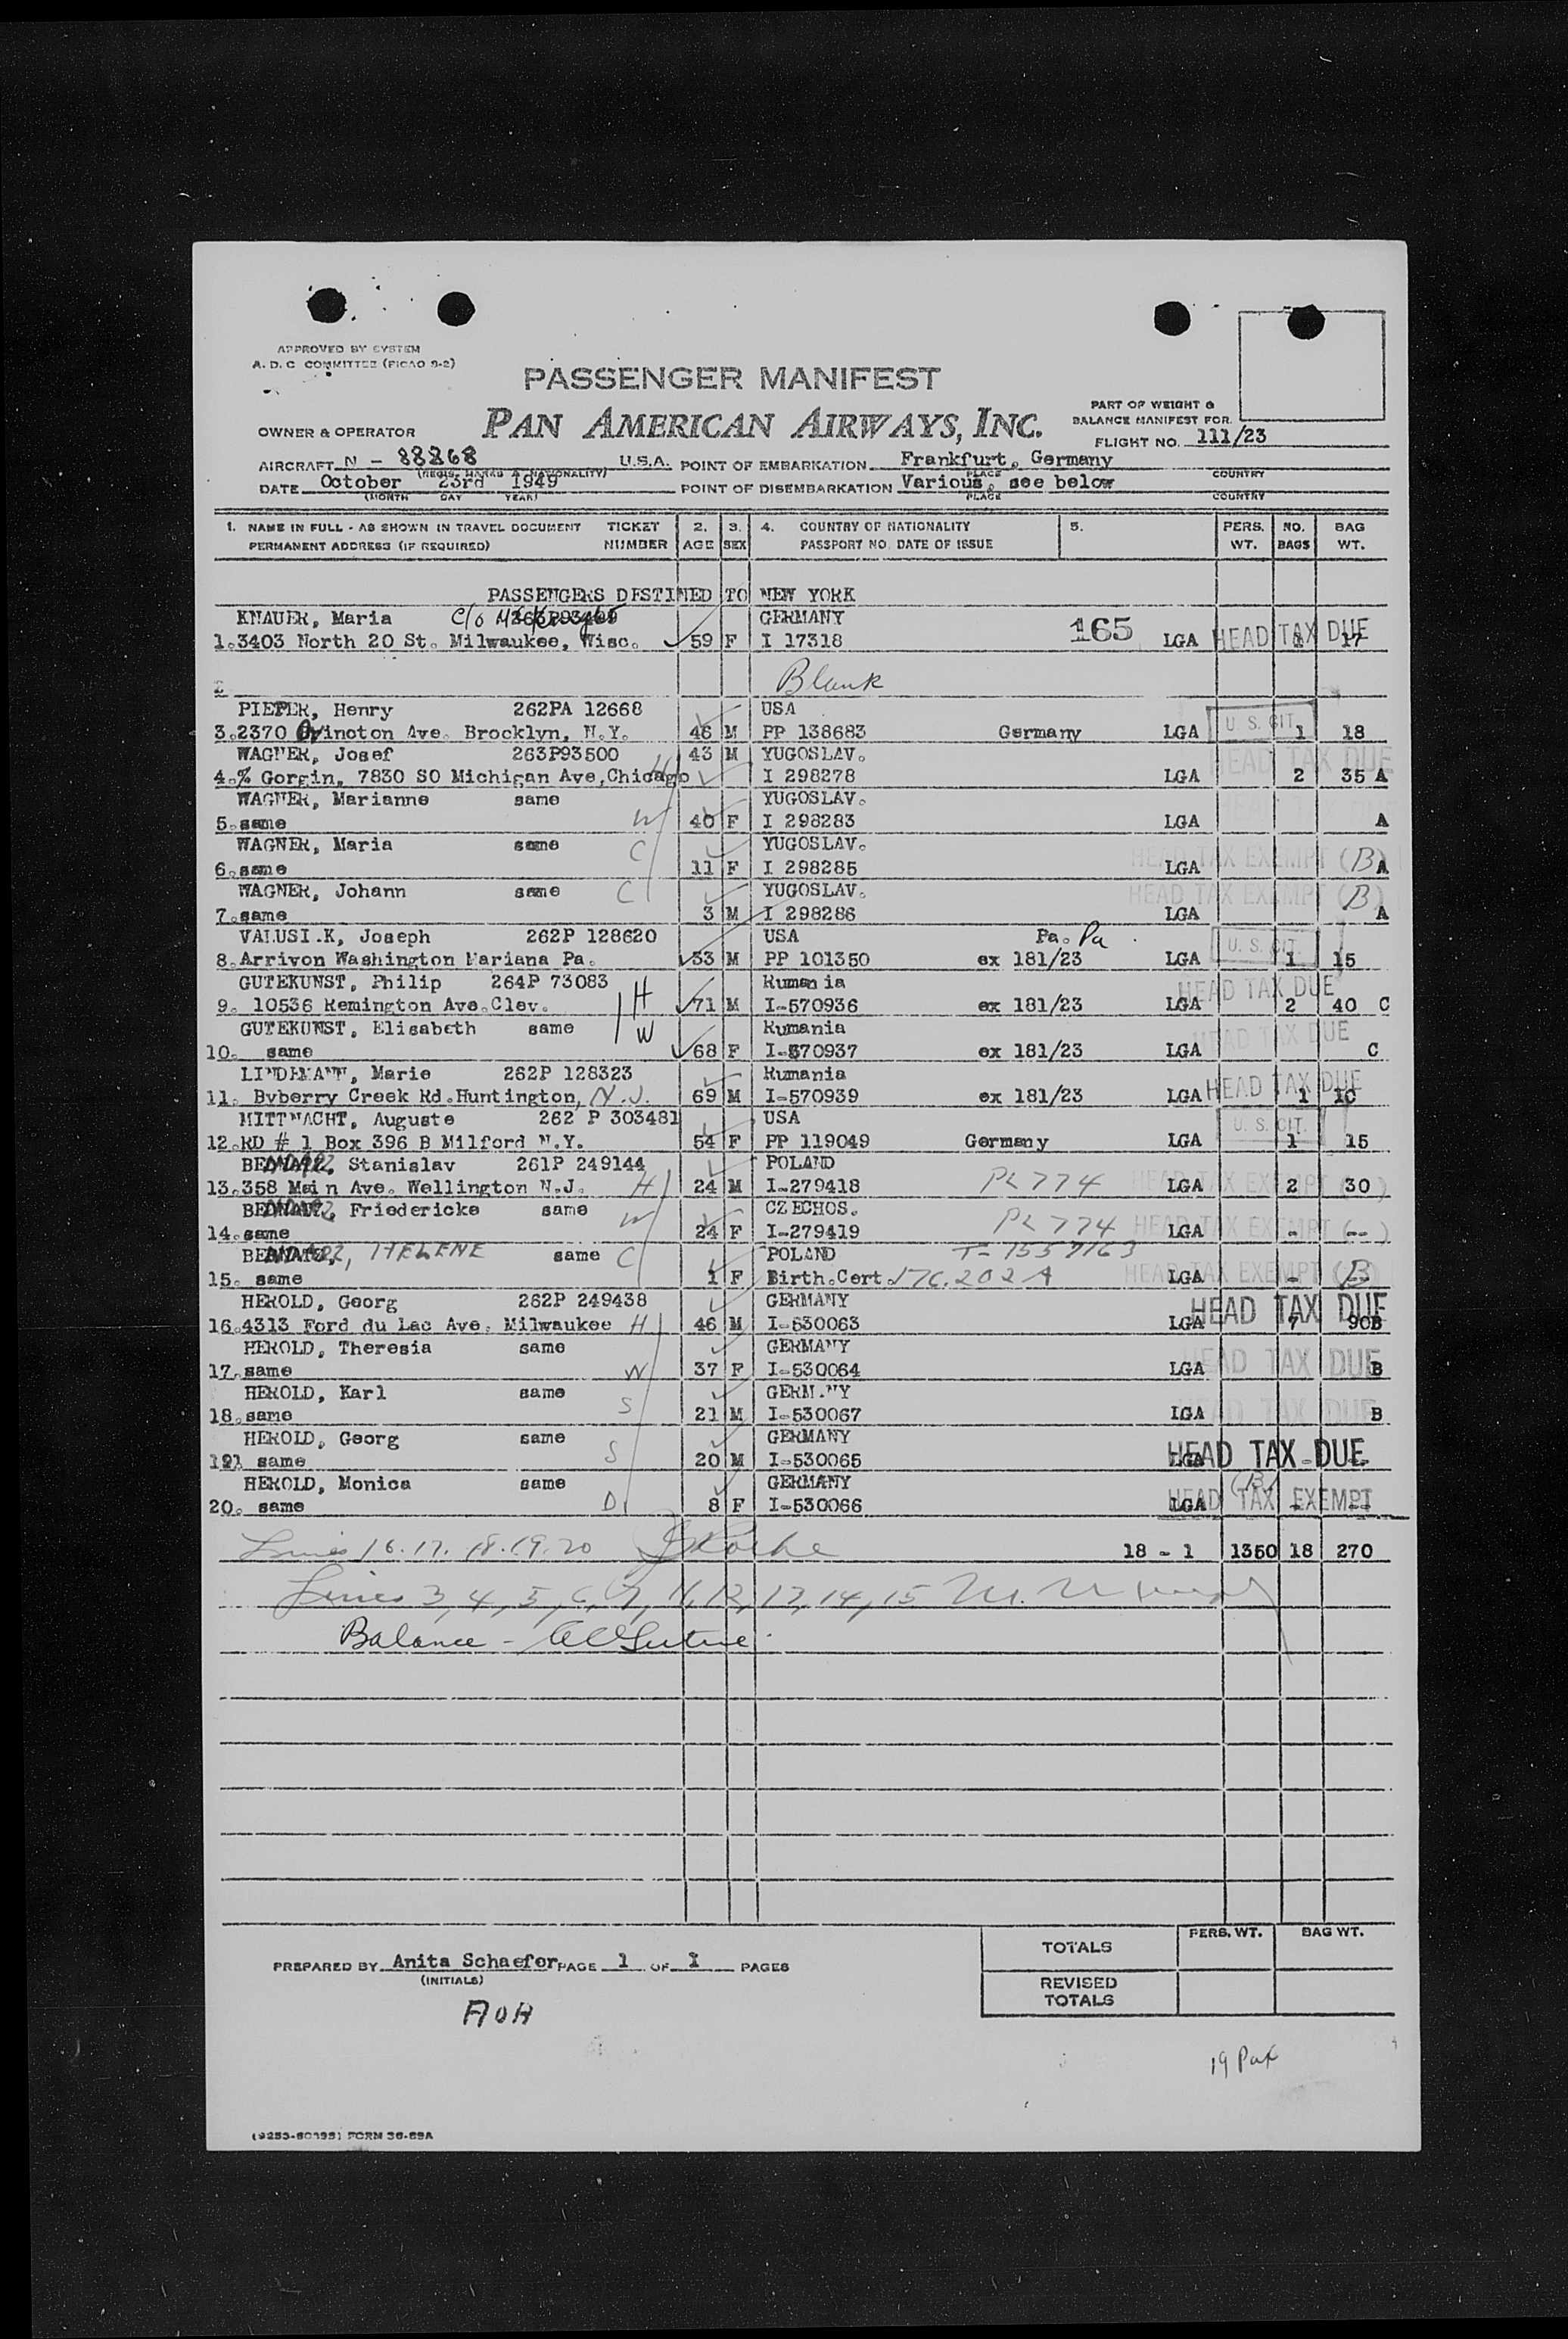 APPROVED BY SYSTEM
A. D. C COMMITTEE (PICAO 9-2)
PASSENGER MANIFEST
PAN AMERICAN AIRWAYS, INC.
PART OF WEIGHT &
BALANCE MANIFEST FOR
OWNER & OPERATOR
FLIGHT NO. 111/23
AIRCRAFT N - 88868 U.S.A. POINT OF EMBARKATION Frankfurt, Germany
(REGIS. MARKS & NATIONALITY) PLACE COUNTRY
DATE October 23rd 1949 POINT OF DISEMBARKATION Various, see below
(MONTH DAY YEAR) PLACE COUNTRY
1. NAME IN FULL - AS SHOWN IN TRAVEL DOCUMENT TICKET 2. 3. 4. COUNTRY OF NATIONALITY 5. PERS. NO. BAG
PERMANENT ADDRESS (IF REQUIRED) NUMBER AGE SEX PASSPORT NO. DATE OF ISSUE WT. BAGS WT.
PASSENGERS DESTINED TO NEW YORK
KNAUER, Maria c/o GERMANY
1.3403 North 20 St. Milwaukee, Wisc. 59 F I 17318 165 LGA HEAD TAX DUE 1 17
2 Blank
PIEPER, Henry 262PA 12668 USA
3.2370 Ave. Brooklyn, N.Y. 46 M PP 138683 Germany LGA U. S. CIT. 1 18
WAGNER, Josef 263P93500 43 M YUGOSLAV. HEAD TAX DUE
4.% Gorgin, 7830 SO Michigan Ave,Chicago H I 298278 LGA 2 35 A
WAGNER, Marianne same YUGOSLAV.
5.same W 40 F I 298283 LGA A
WAGNER, Maria same C YUGOSLAV. HEAD TAX EXEMPT (B)
6.same 11 F I 298285 LGA A
WAGNER, Johann same C YUGOSLAV. HEAD TAX EXEMPT (B)
7.same 3 M I 298286 LGA A
VALUSI.K, Joseph 262P 128620 USA Pa. Pa
8.Arrivon Washington Mariana Pa. 53 M PP 101350 ex 181/23 LGA U. S. CIT. 1 15
GUTEKUNST, Philip 264P 73083 H Rumania HEAD TAX DUE
9. 10536 Remington Ave.Clev. 71 M I-570936 ex 181/23 LGA 2 40 C
GUTEKUNST, Elisabeth same W Rumania HEAD TAX DUE
10. same 68 F I-570937 ex 181/23 LGA C
LINDEMANN, Marie 262P 128323 Rumania HEAD TAX DUE
11. Byberry Creek Rd.Huntington, N.J. 69 M I-570939 ex 181/23 LGA 1 10
MITTNACHT, Auguste 262 P 303481 USA U. S. CIT.
12.RD # 1 Box 396 B Milford N.Y. 54 F PP 119049 Germany LGA 1 15
BEDNARZ, Stanislav 261P 249144 POLAND
13.358 Main Ave. Wellington N.J. H 24 M I-279418 PL 774 LGA HEAD TAX EXEMPT ( ) 2 30
BEDNARZ, Friedericke same CZECHOS.
14.same W 24 F I-279419 PL 774 LGA HEAD TAX EXEMPT ( ) - --
BEDNARZ, HELENE same C POLAND T-1557163
15. same 1 F Birth.Cert. 176.202A LGA HEAD TAX EXEMPT (B) - --
HEROLD, Georg 262P 249438 GERMANY HEAD TAX DUE
16.4313 Ford du Lac Ave. Milwaukee H 46 M I-530063 LGA 7 90B
HEROLD, Theresia same GERMANY
17.same W 37 F I-530064 LGA HEAD TAX DUE B
HEROLD, Karl same S GERM.NY
18.same 21 M I-530067 LGA HEAD TAX DUE B
HEROLD, Georg same S GERMANY
191 same 20 M I-530065 LGA HEAD TAX DUE - --
HEROLD, Monica same GERMANY (B)
20. same D 8 F I-530066 LGA HEAD TAX EXEMPT - --
Lines 16.17.18.19.20 18 - 1 1350 18 270
Lines 3, 4, 5, 6, 7, 11, 12, 13, 14, 15
Balance -
TOTALS PERS. WT. BAG WT.
PREPARED BY Anita Schaefer PAGE 1 OF 1 PAGES
(INITIALS)
REVISED
TOTALS
AOH
19 Pax
FORM 36-89A